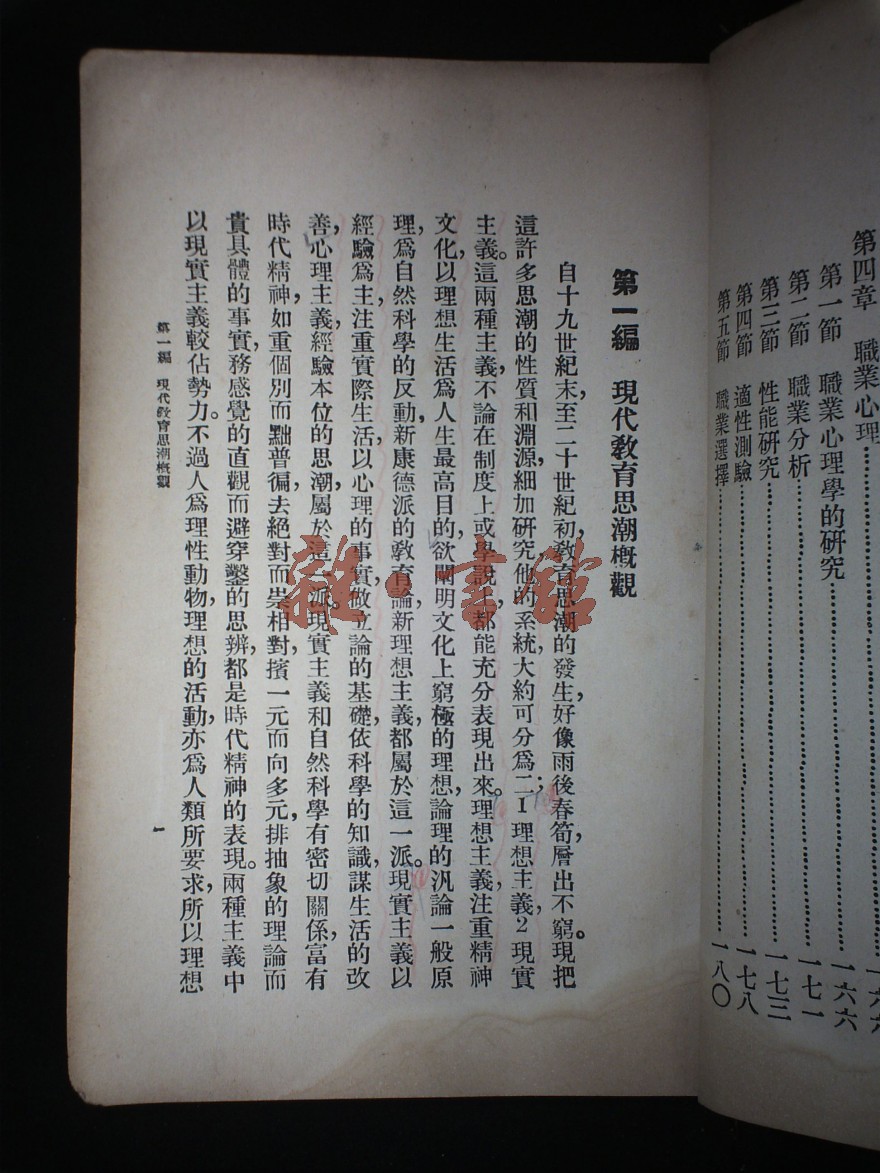 第四章　職業心理………一六六
第一節　職業心理學的研究………一六六
第二節　職業分析………一七一
第三節　性能研究………一七三
第四節　適性測驗………一七八
第五節　職業選擇………一八〇
第一編　現代敎育思潮槪觀
自十九世紀末，至二十世紀初，敎育思潮的發生，好像雨後春筍，層出不窮。現把
這許多思潮的性質和淵源，細加硏究，他的系統，大約可分爲二；1理想主義，2現實
主義。這兩種主義，不論在制度上或學說上，都能充分表現出來。理想主義注重精神
文化，以理想生活爲人生最高目的，欲闡明文化上窮極的理想，論理的汎論一般原
理，爲自然科學的反動，新康德派的敎育論，新理想主義，都屬於這一派。現實主義以
經驗爲主，注重實際生活，以心理的事實，做立論的基礎，依科學的知識，謀生活的改
善，心理主義，經驗本位的思潮，屬於這一派。現實主義和自然科學有密切關係，富有
時代精神，如重個別而黜普徧，去絕對而崇相對，擯一元而向多元，排抽象的理論而
貴具體的事實，務感覺的直觀而避穿鑿的思辨，都是時代精神的表現。兩種主義中，
以現實主義較佔勢力。不過人爲理性動物，理想的活動，亦爲人類所要求，所以理想
第一編　現代敎育思潮槪觀
一
雜·書館